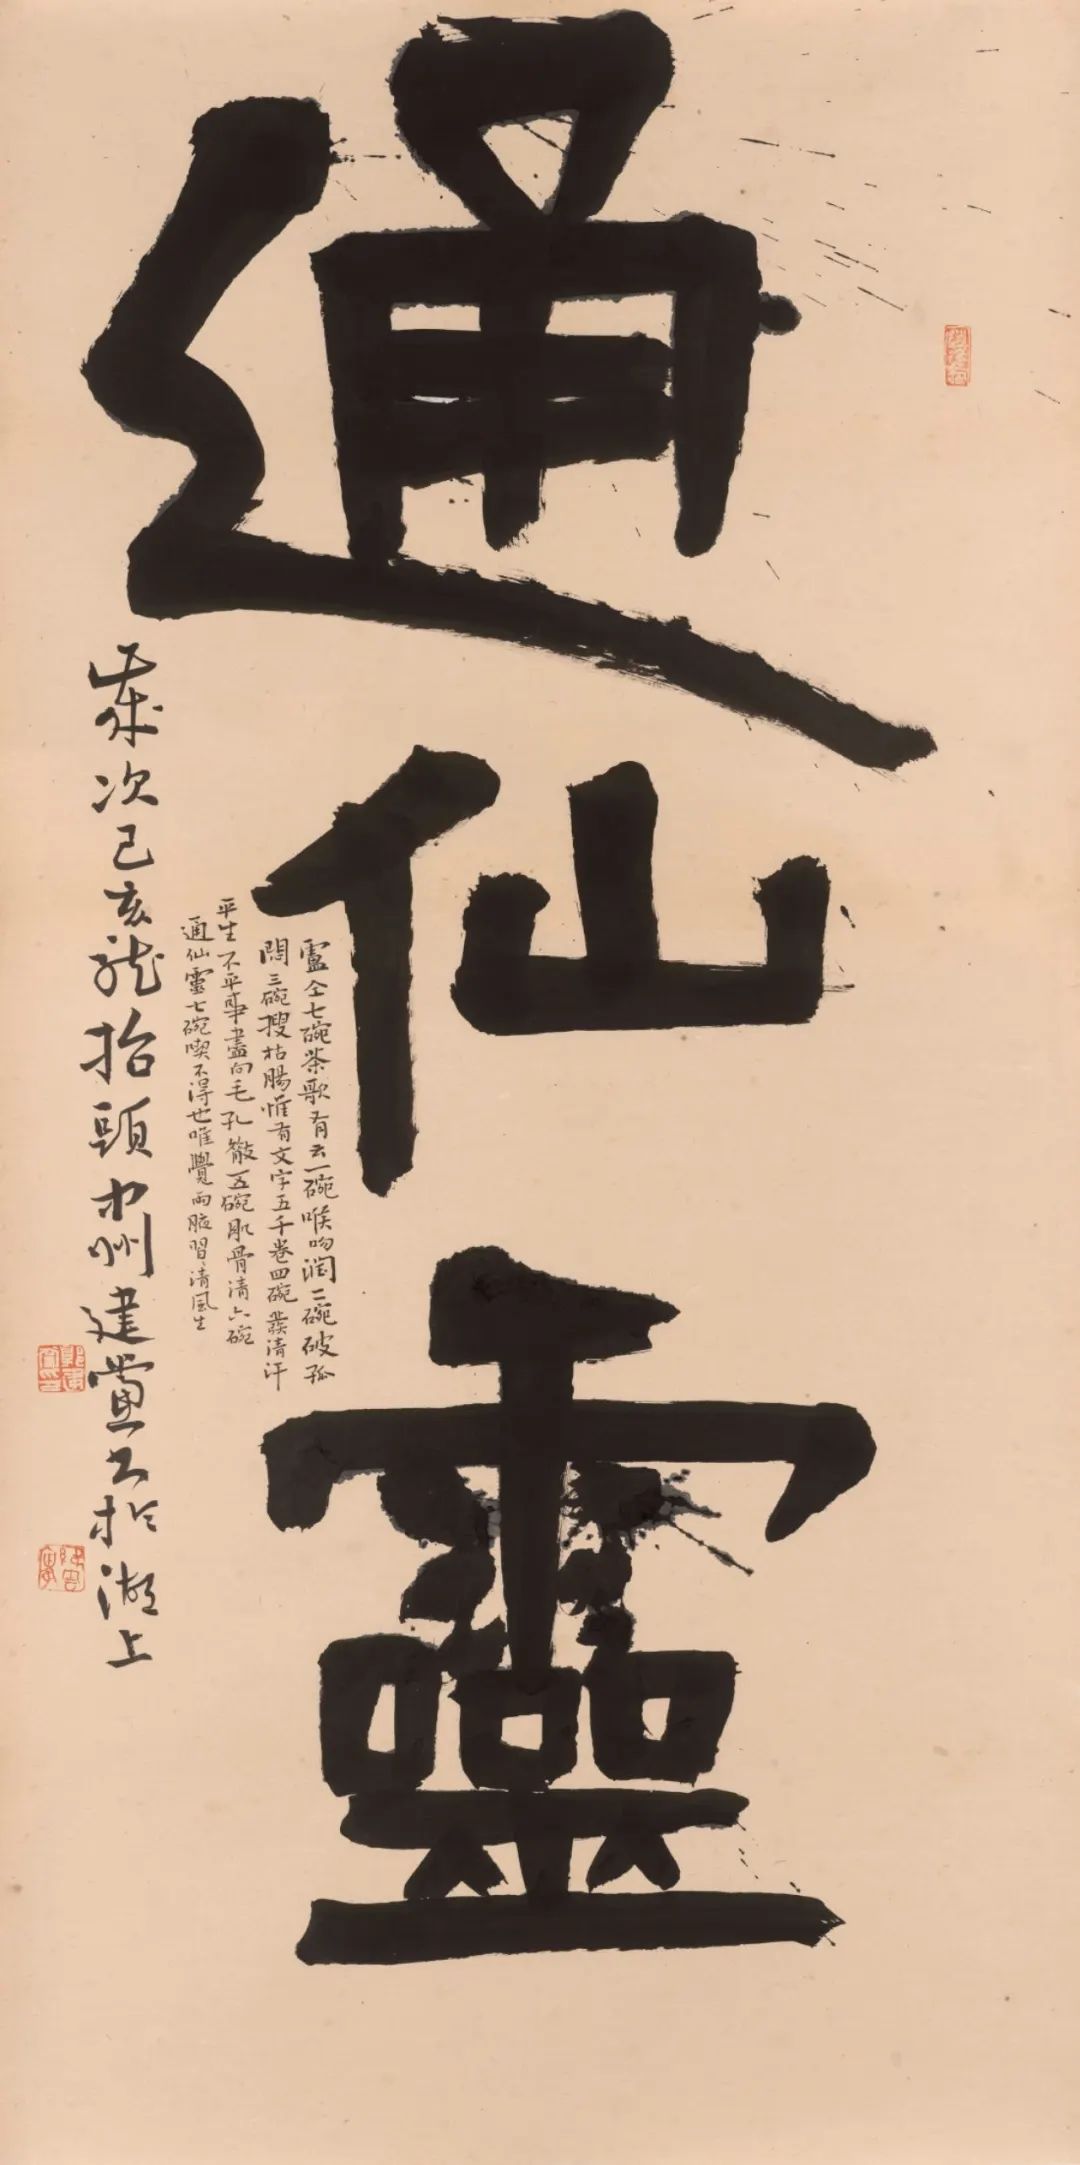 通仙靈
盧仝七碗茶歌有云一碗喉吻潤二碗破孤
悶三碗搜枯腸惟有文字五千卷四碗發清汗
平生不平事盡向毛孔散五碗肌骨清六碗
通仙靈七碗喫不得也唯覺兩腋習習清風生
歲次己亥龍抬頭中州建黨書於湖上